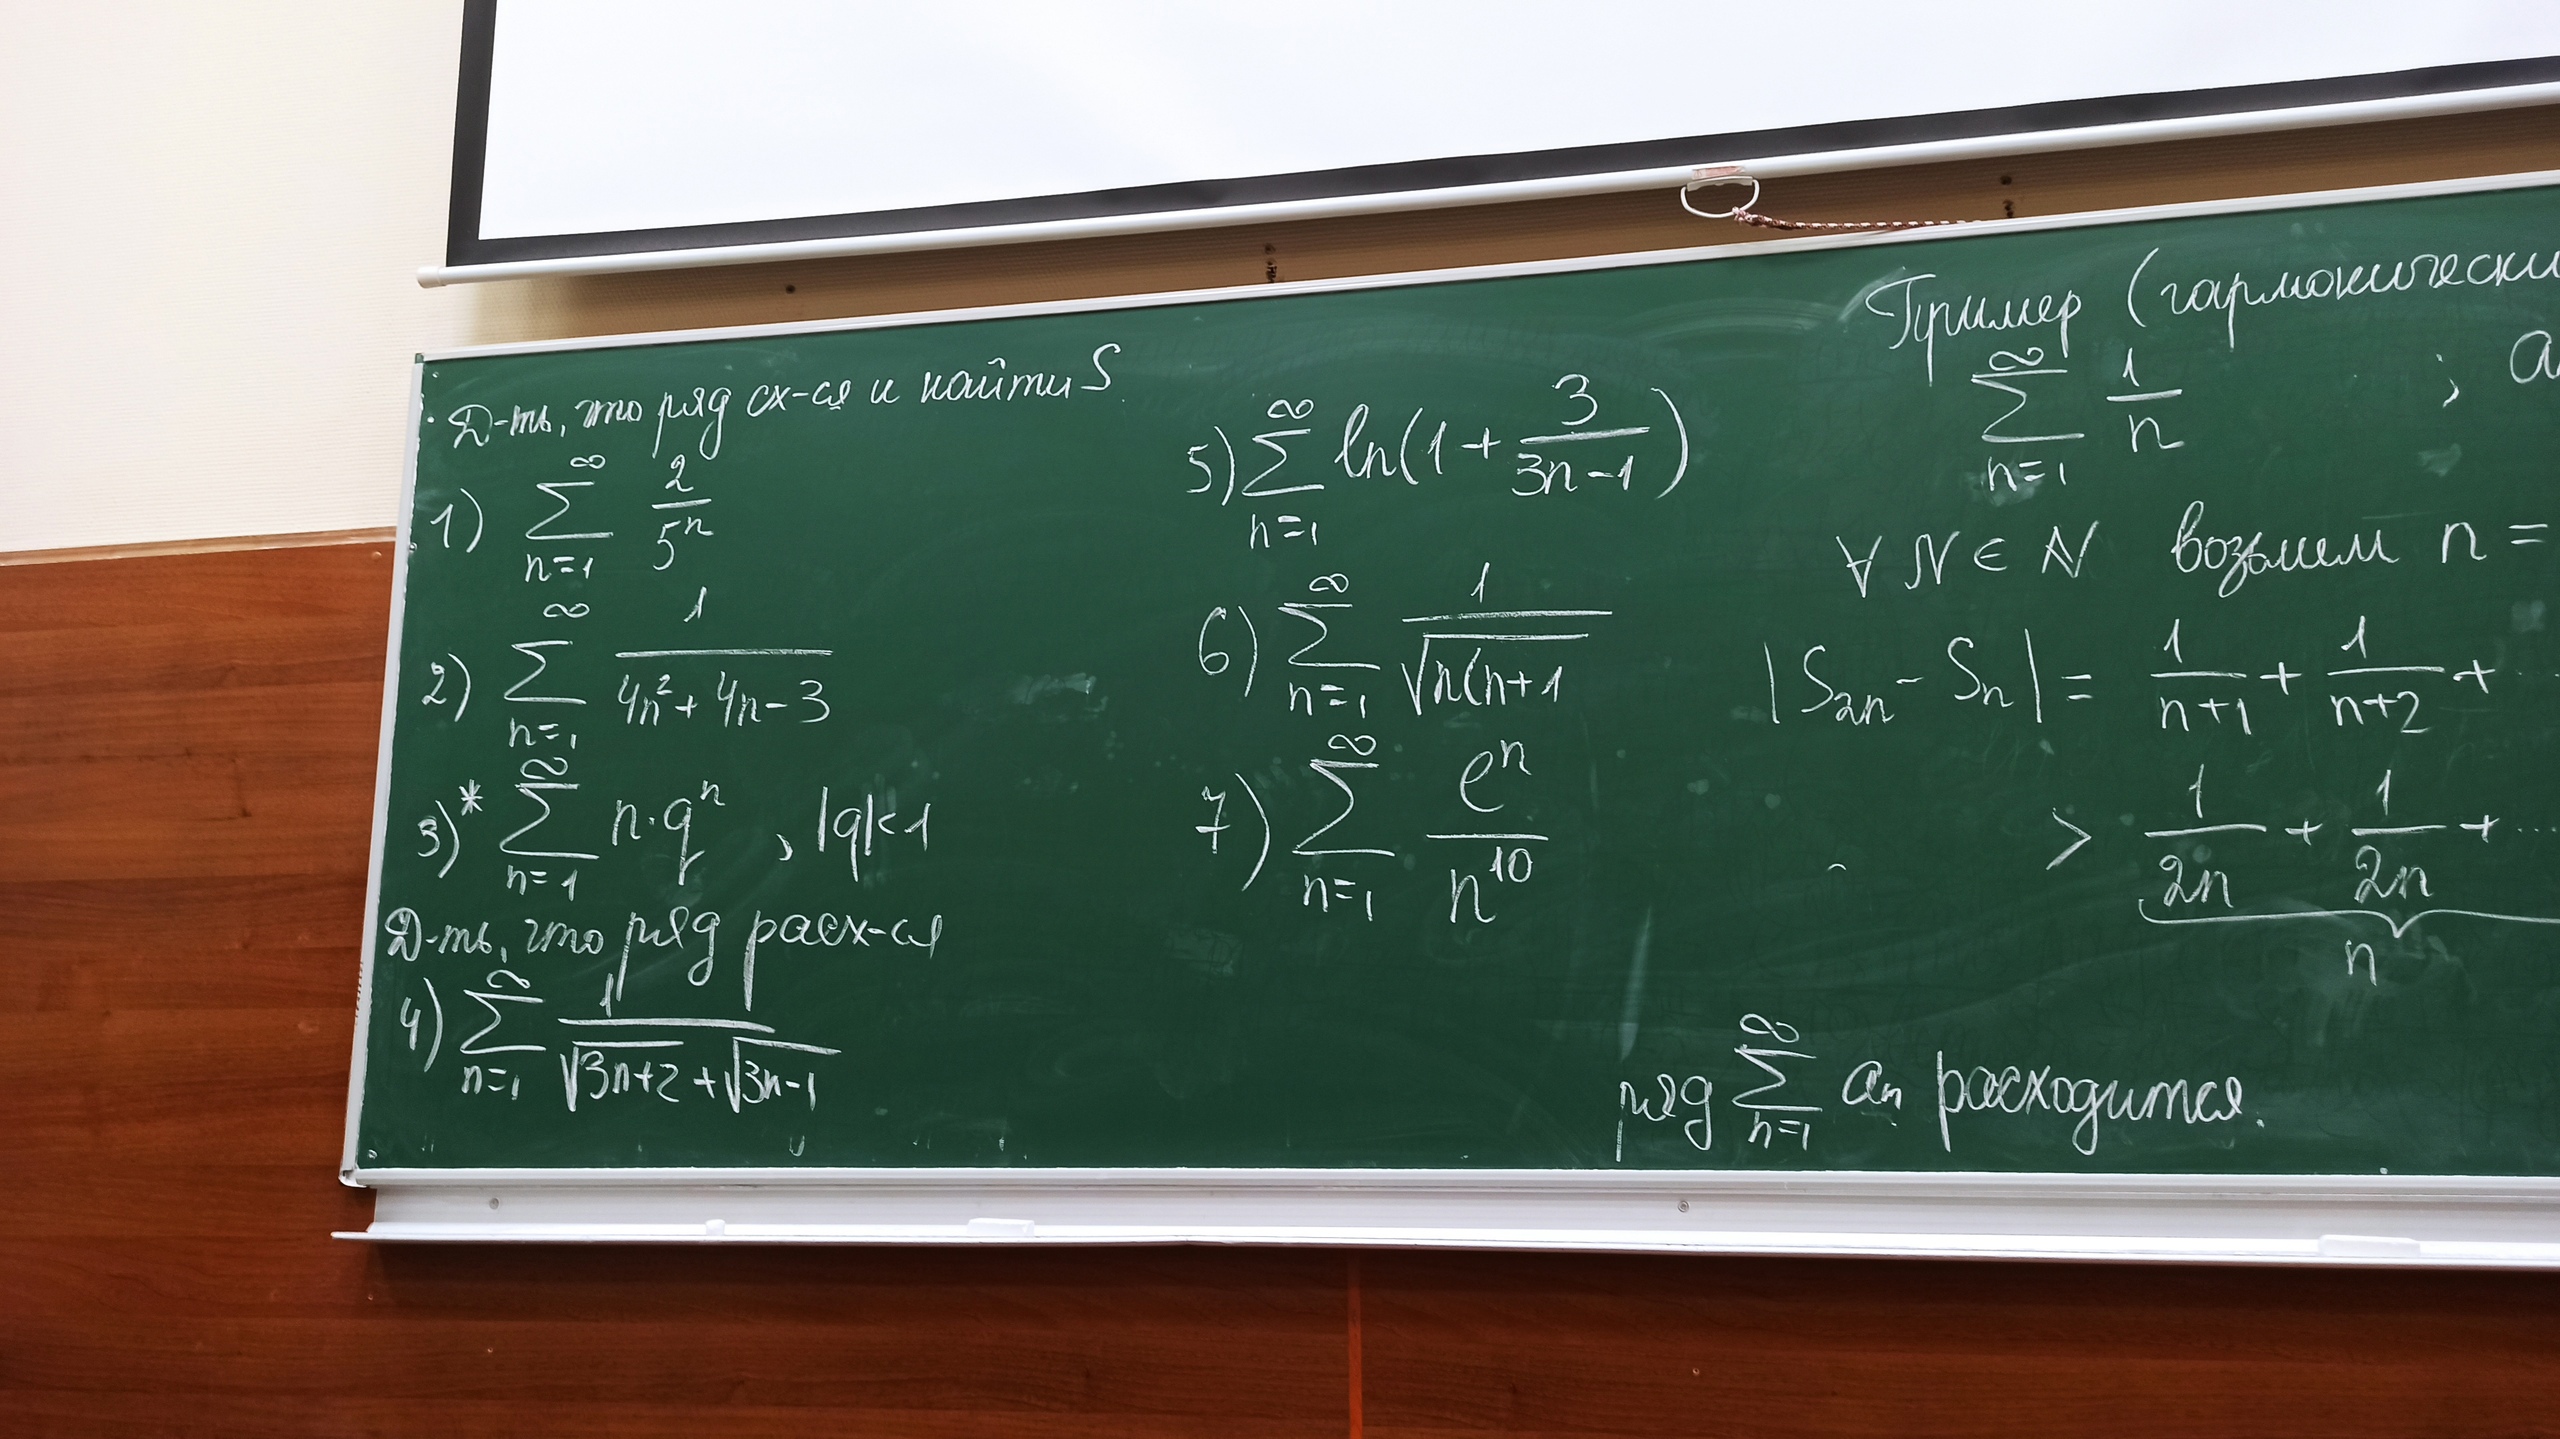 · Д-ть, что ряд сх-ся и найти S
1) ∞ ∑ n=1 2/5ⁿ
2) ∞ ∑ n=1 1/(4n²+4n-3)
3)* ∞ ∑ n=1 n·qⁿ , |q|<1
Д-ть, что ряд расх-ся
4) ∞ ∑ n=1 1/(√3n+2 + √3n-1)
5) ∞ ∑ n=1 ln(1+3/(3n-1))
6) ∞ ∑ n=1 1/√n(n+1
7) ∞ ∑ n=1 eⁿ/n¹⁰
Пример (гармонически
∞ ∑ n=1 1/n ; a
∀ N ∈ ℕ возьмем n =
|S₂ₙ - Sₙ| = 1/(n+1) + 1/(n+2) + ...
> 1/2n + 1/2n + ...
n
ряд ∞ ∑ n=1 aₙ расходится.